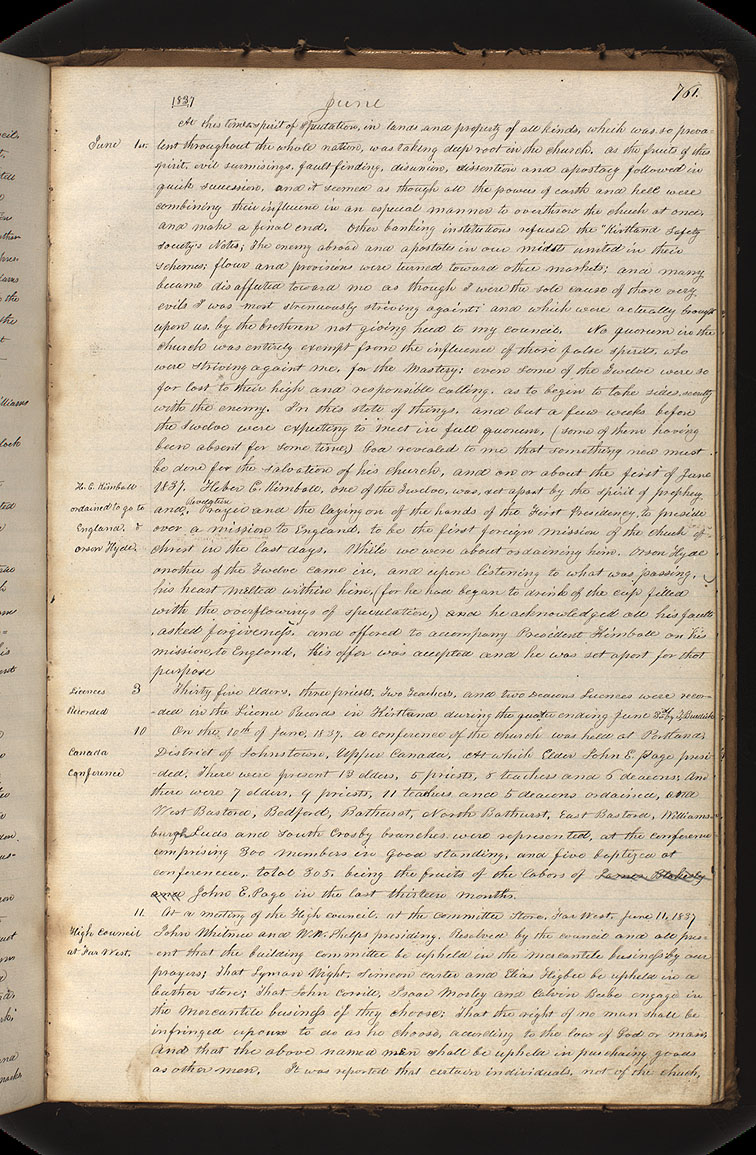 1837 June 761.
At this time the spirit of speculation, in lands and property of all kinds, which was so preva-
June 1st. lent throughout the whole nation, was taking deep root in the church. as the fruits of this
spirit, evil surmisings, fault finding, disunion, dissention and apostacy followed in
quick succession, and it seemed as though all the powers of earth and hell were
combining their influence in an especial manner to overthrow the church at once,
and make a final end. Other banking institutions refused the "Kirtland Safety
Society's Notes; The enemy abroad and apostates in our midsts united in their
schemes; flour and provisions were turned toward other markets; and many
became disaffected toward me as though I were the sole cause of those very
evils I was most strenuously striving against; and which were actually brought
upon us, by the brethren not giving heed to my council. No quorum in the
church was entirely exempt from the influence of those false spirits, who
were striving against me, for the Mastery; even some of the Twelve were so
far lost to their high and responsible calling, as to begin to take sides, secretly
with the enemy. In this state of things, and but a few weeks before
the Twelve were expecting to meet in full quorum, (some of them having
been absent for some time,) God revealed to me that something new must
be done for the salvation of his church, and on or about the first of June
H. C. Kimball 1837. Heber C. Kimball, one of the Twelve, was, set apart by the spirit of prophecy
ordained to go to and, Revelation Prayer and the laying on of the hands of the First Presidency, to preside
England. & over a mission to England, to be the first foreign mission of the chuch of
Orson Hyde. christ in the last days. While we were about ordaining him, Orson Hyde
another of the Twelve came in, and upon listening to what was passing,
his heart melted within him, (for he had began to drink of the cup filled
with the overflowings of speculation,) and he acknowledged all his faults
, asked forgiveness, and offered to accompany President Kimball on his
mission, to England, his offer was accepted and he was set apart for that
purpose
Licences 3 Thirty five Elders, three priests, Two Teachers, and two Deacons Licences were recor-
Recorded -ded in the Licence Records in Kirtland during the quater ending June 3rd by T. Burdick
10 On the 10th of June, 1837, a conference of the church was held at Portland,
Canada District of Johnstown, Upper Canada, At which Elder John E. Page presi-
Conference -ded, There were present 13 elders, 5 priests, 8 teachers and 6 deacons; And
there were 7 elders, 9 priests, 11 teachers and 5 deacons ordained, and
West Bastard, Bedford, Bathurst, North Bathurst, East Bastard, Williams-
burgh Leeds and South Crosby branches were represented, at the conference
comprising 300 members in good standing, and five baptized at
conference, total 305. being the fruits of the labors of
and John E. Page in the last thirteen months.
11. At a meeting of the High council, at the committee Store, Far West, June 11, 1837
High Council John Whitmer and W. W. Phelps presiding. Resolved by the council and all pres-
at Far West. ent that the building committee be upheld in the mercantile business by our
prayers; That Lyman Wight, Simeon Carter and Elias Higbee be upheld in a
leather store; That John Corrill, Isaac Morley and Calvin Beebe engage in
the Mercantile business if they choose; That the right of no man shall be
infringed upon to do as he choose, acording to the law of God or man;
And that the above named men shall be upheld in purchasing goods
as other men. It was reported that certain individuals, not of the chuch,